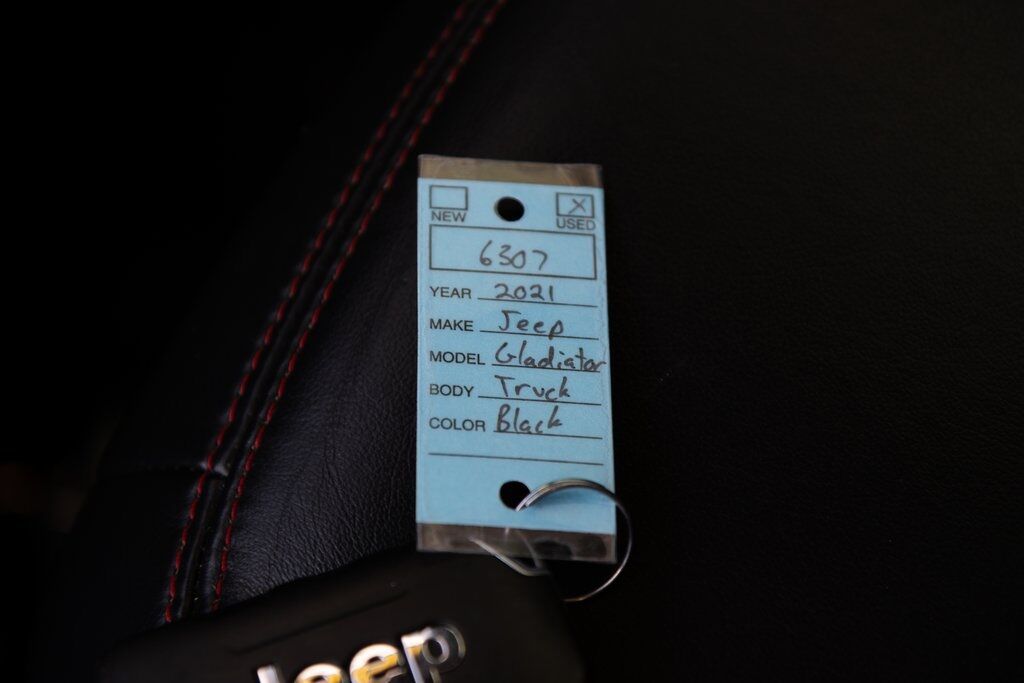 NEW
X
USED
6307
YEAR 2021
MAKE Jeep
MODEL Gladiator
BODY Truck
COLOR Black
Jeep